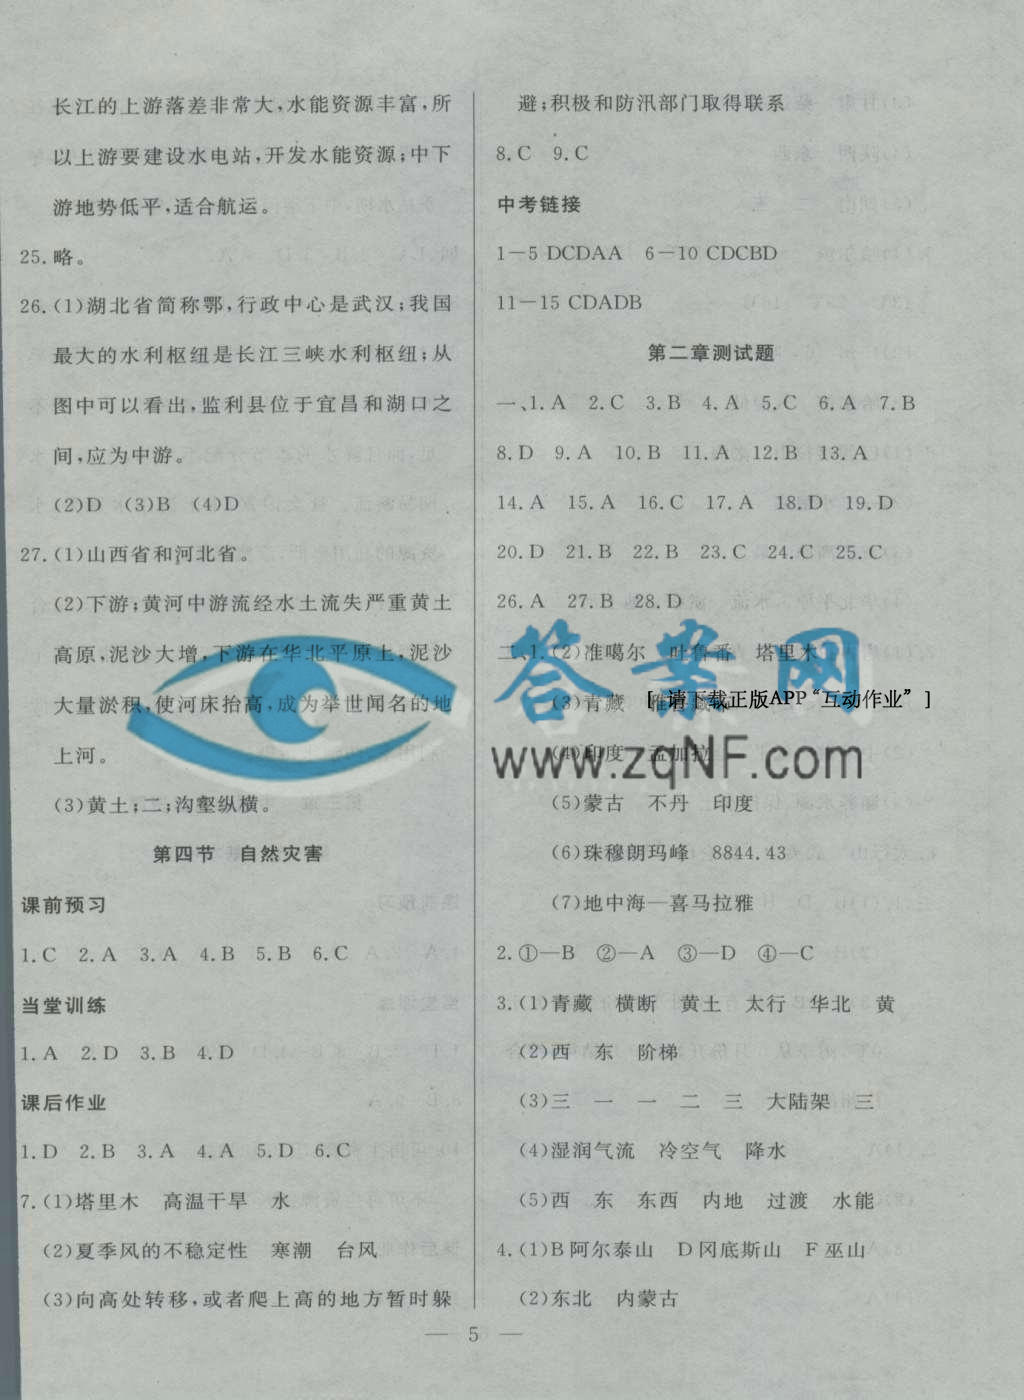 长江的上游落差非常大,水能资源丰富,所
以上游要建设水电站,开发水能资源;中下
游地势低平,适合航运。
25.略。
26.(1)湖北省简称鄂,行政中心是武汉;我国
最大的水利枢纽是长江三峡水利枢纽;从
图中可以看出,监利县位于宜昌和湖口之
间,应为中游。
(2)D (3)B (4)D
27.(1)山西省和河北省。
(2)下游;黄河中游流经水土流失严重黄土
高原,泥沙大增,下游在华北平原上,泥沙
大量淤积,使河床抬高,成为举世闻名的地
上河。
(3)黄土;二;沟壑纵横。
第四节 自然灾害
课前预习
1.C 2.A 3.A 4.B 5.B 6.C
当堂训练
1.A 2.D 3.B 4.D
课后作业
1.D 2.B 3.A 4.A 5.D 6.C
7.(1)塔里木 高温干旱 水
(2)夏季风的不稳定性 寒潮 台风
(3)向高处转移,或者爬上高的地方暂时躲
避;积极和防汛部门取得联系
8.C 9.C
中考链接
1－5 DCDAA 6－10 CDCBD
11－15 CDADB
第二章测试题
一、1.A 2.C 3.B 4.A 5.C 6.A 7.B
8.D 9.A 10.B 11.A 12.B 13.A
14.A 15.A 16.C 17.A 18.D 19.D
20.D 21.B 22.B 23.C 24.C 25.C
26.A 27.B 28.D
二、1.(2)准噶尔 吐鲁番 塔里木
(3)青藏 雅鲁藏布
[请下载正版APP“互动作业” ]
(4)印度 孟加拉
(5)蒙古 不丹 印度
(6)珠穆朗玛峰 8844.43
(7)地中海—喜马拉雅
2.①—B ②—A ③—D ④—C
3.(1)青藏 横断 黄土 太行 华北 黄
(2)西 东 阶梯
(3)三 一 一 二 三 大陆架 三
(4)湿润气流 冷空气 降水
(5)西 东 东西 内地 过渡 水能
4.(1)B阿尔泰山 D冈底斯山 F巫山
(2)东北 内蒙古
— 5 —
答案网
www.zqNF.com